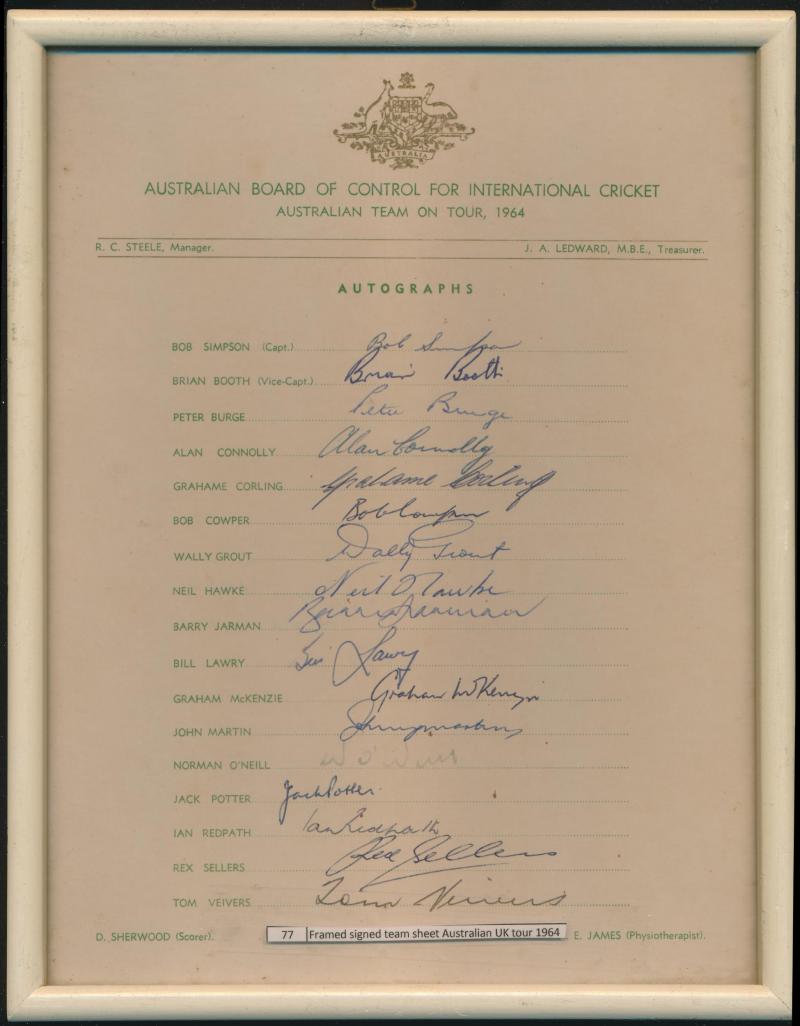 AUSTRALIA
AUSTRALIAN BOARD OF CONTROL FOR INTERNATIONAL CRICKET
AUSTRALIAN TEAM ON TOUR, 1964
R. C. STEELE, Manager. J. A. LEDWARD, M.B.E., Treasurer.
AUTOGRAPHS
BOB SIMPSON (Capt.) Bob Simpson
BRIAN BOOTH (Vice-Capt.) Brian Booth
PETER BURGE Peter Burge
ALAN CONNOLLY Alan Connolly
GRAHAME CORLING Grahame Corling
BOB COWPER Bob Cowper
WALLY GROUT Wally Grout
NEIL HAWKE Neil Hawke
BARRY JARMAN
BILL LAWRY Bill Lawry
GRAHAM McKENZIE Graham McKenzie
JOHN MARTIN Johnny Martin
NORMAN O'NEILL N O'Neill
JACK POTTER Jack Potter.
IAN REDPATH Ian Redpath
REX SELLERS Rex Sellers
TOM VEIVERS Tom Veivers
D. SHERWOOD (Scorer). 77 Framed signed team sheet Australian UK tour 1964 E. JAMES (Physiotherapist).